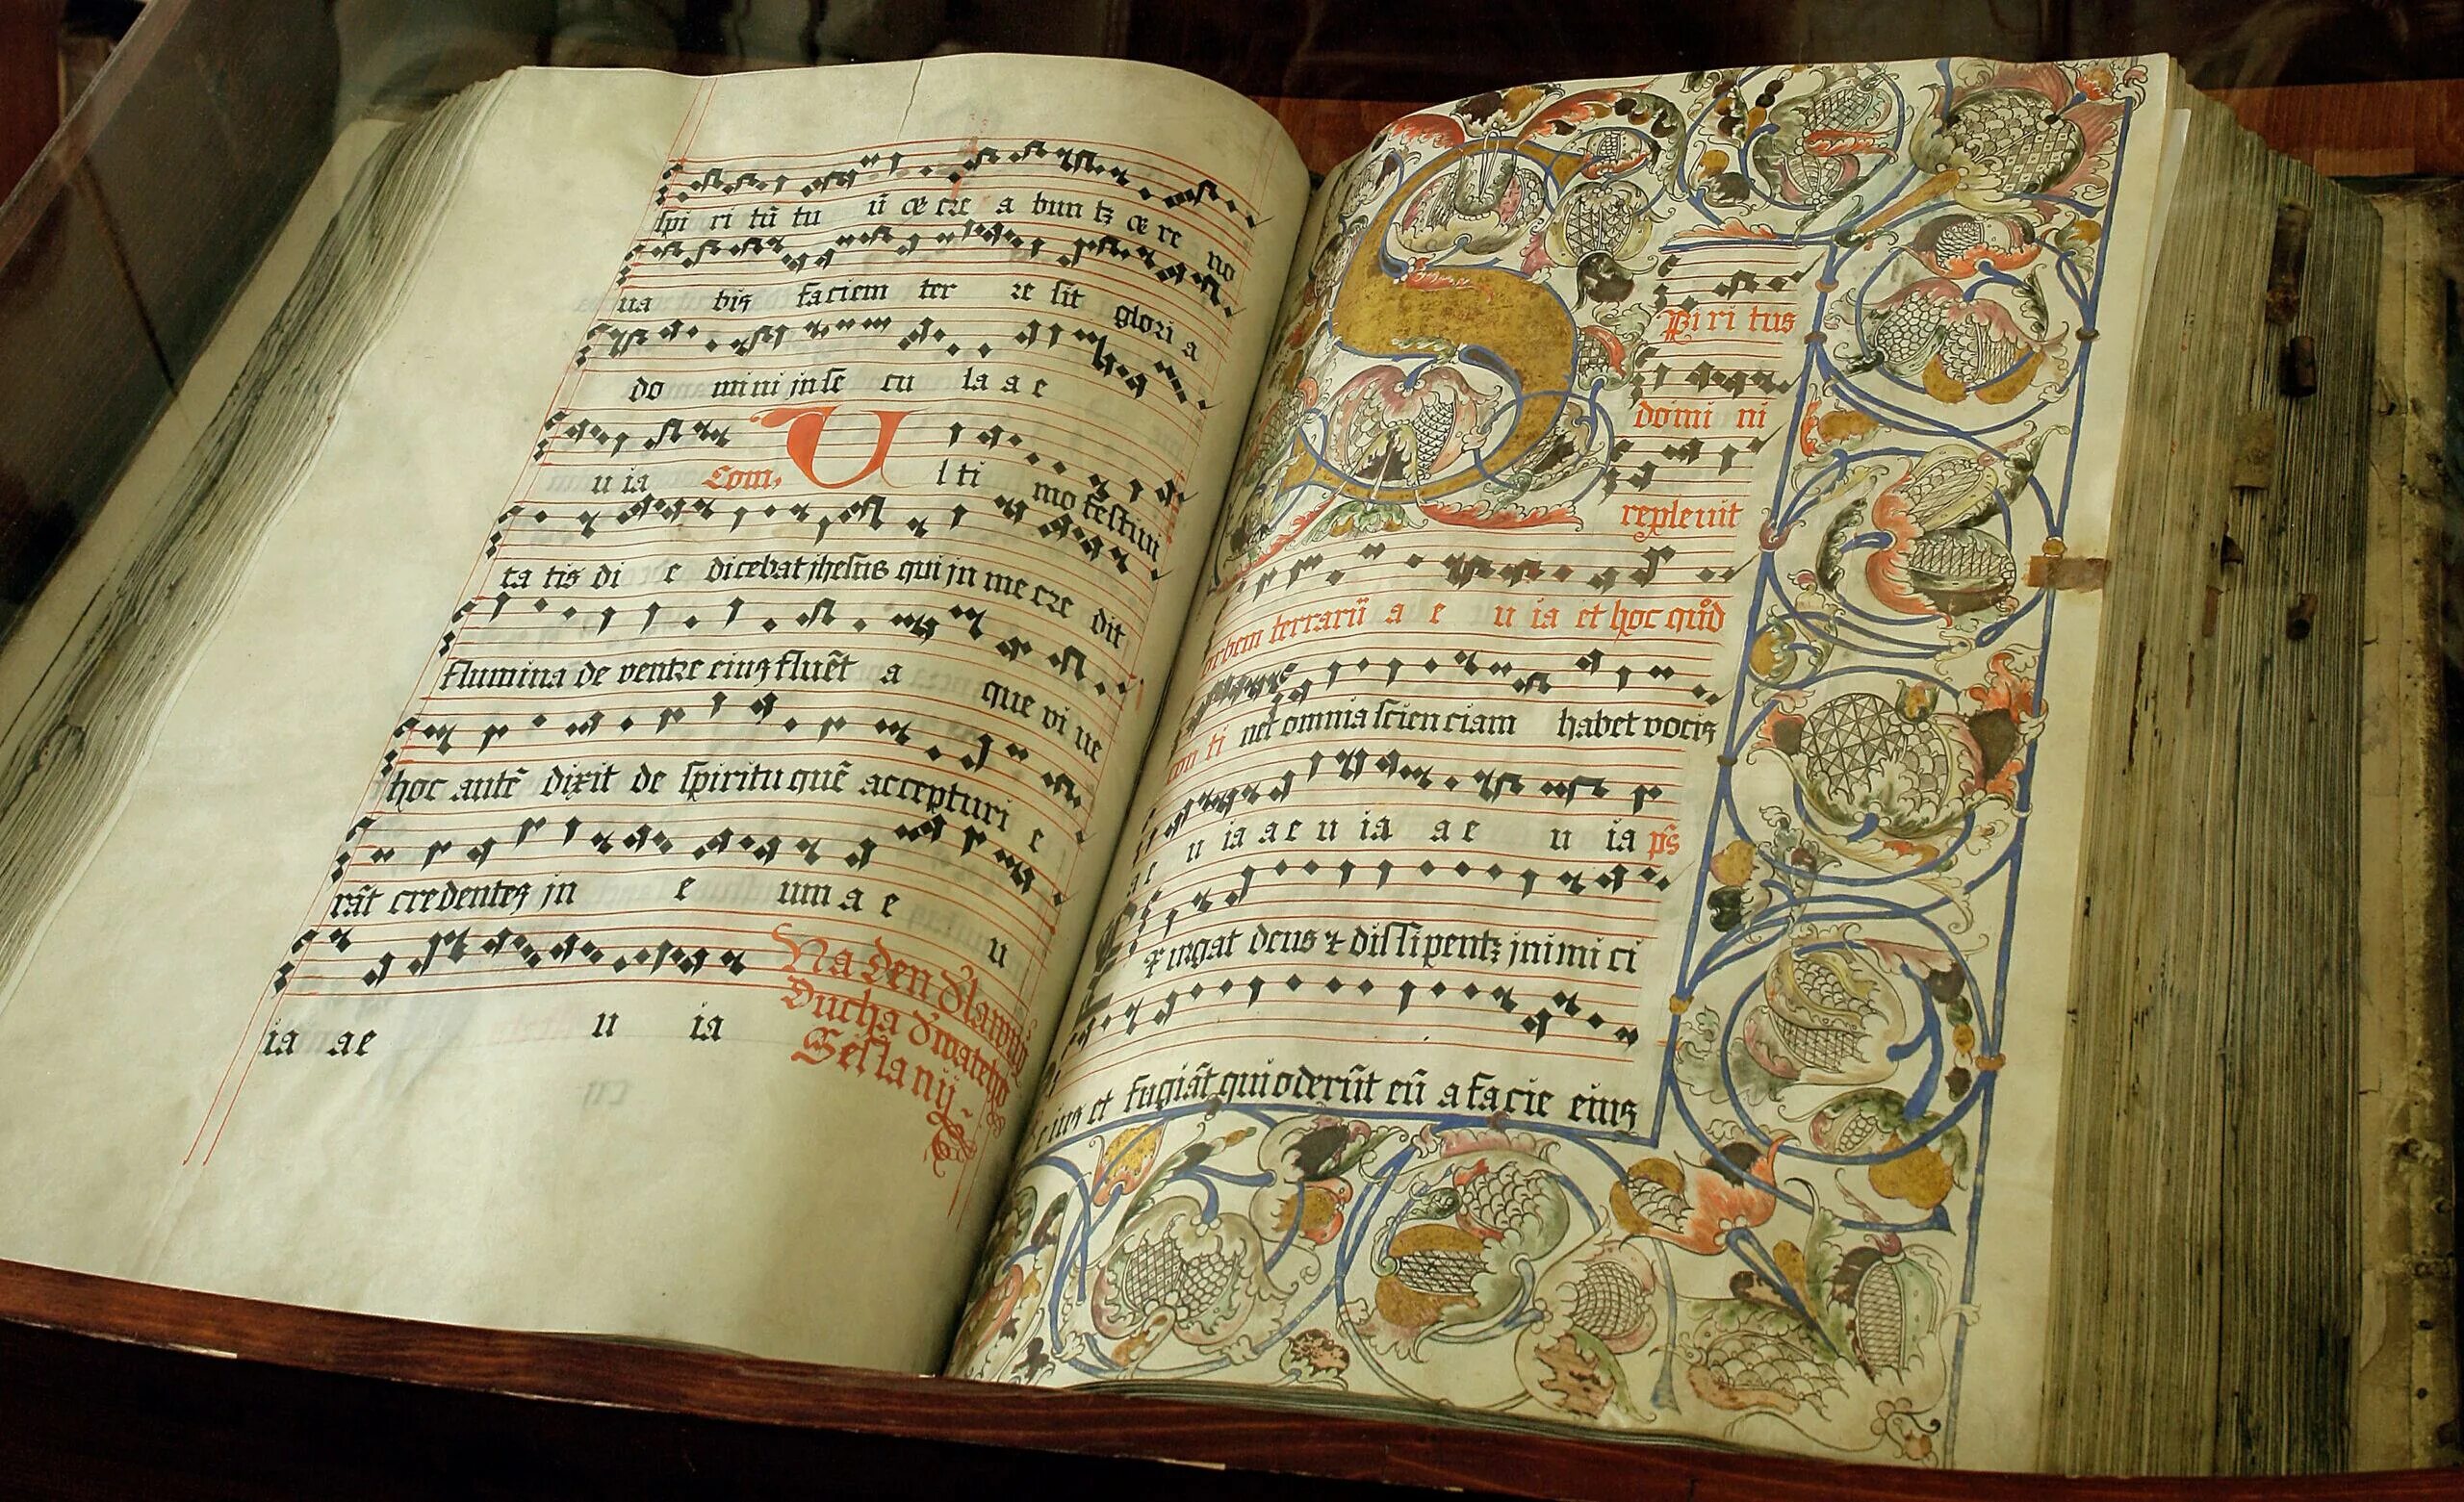 spi ri tū tu ū & cre a bun tꝫ & re no
ua bis faciem ter re sit glori a
do mini jn se cu la a e
u ia Com, U l ti mo festiui
ta tis di e dicebat jhesus qui jn me cre dit
flumina de ventre eius fluēt a que vi ue
hoc autē dixit de spiritu quē accepturi e
rāt credentes jn e um a e u
ia a e u ia
Na den Zlawny
Ducha Zwateho
Seslanij
S
Spi ri tus
domi ni
repleuit
orbem terrarū a e u ia et hoc quod
con ti net omnia scien ciam habet vocis
a e u ia a e u ia a e u ia ps
Ex urgat deus & dissipentꝫ jnimi ci
eius et fugiāt qui oderūt eū a facie eius